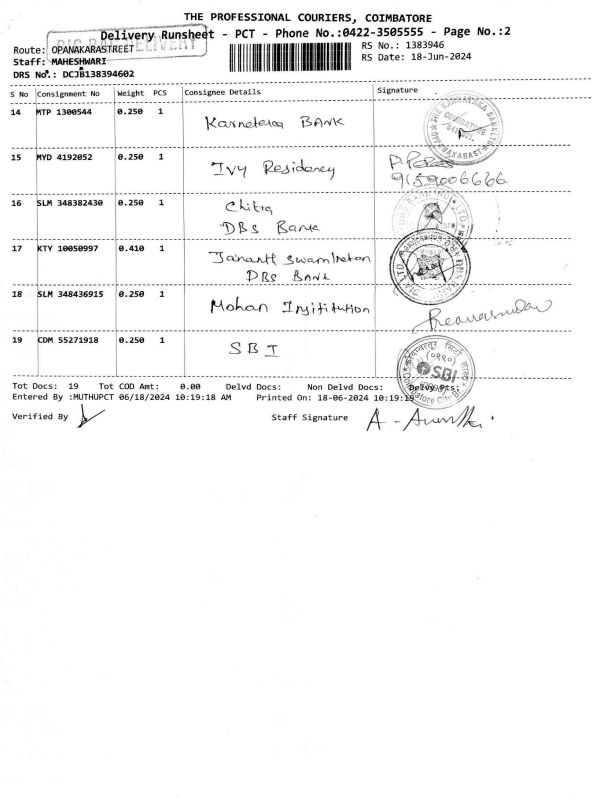 THE PROFESSIONAL COURIERS, COIMBATORE
Delivery Runsheet - PCT - Phone No.:0422-3505555 - Page No.:2
Route: OPANAKARASTREET
RS No.: 1383946
Staff: MAHESHWARI
RS Date: 18-Jun-2024
DRS No.: DCJB138394602
S No Consignment No Weight PCS Consignee Details Signature
14 MTP 1300544 0.250 1 Karneteka BANK
15 MYD 4192052 0.250 1 Ivy Residency
9659006666
16 SLM 348382430 0.250 1 Chitra
DBS Bank
17 KTY 10050997 0.410 1
DBS BANK
18 SLM 348436915 0.250 1 Mohan
19 CDM 55271918 0.250 1 SBI
SBI
Tot Docs: 19 Tot COD Amt: 0.00 Delvd Docs: Non Delvd Docs: Delvy Pts:
Entered By :MUTHUPCT 06/18/2024 10:19:18 AM Printed On: 18-06-2024 10:19:19
Verified By Staff Signature